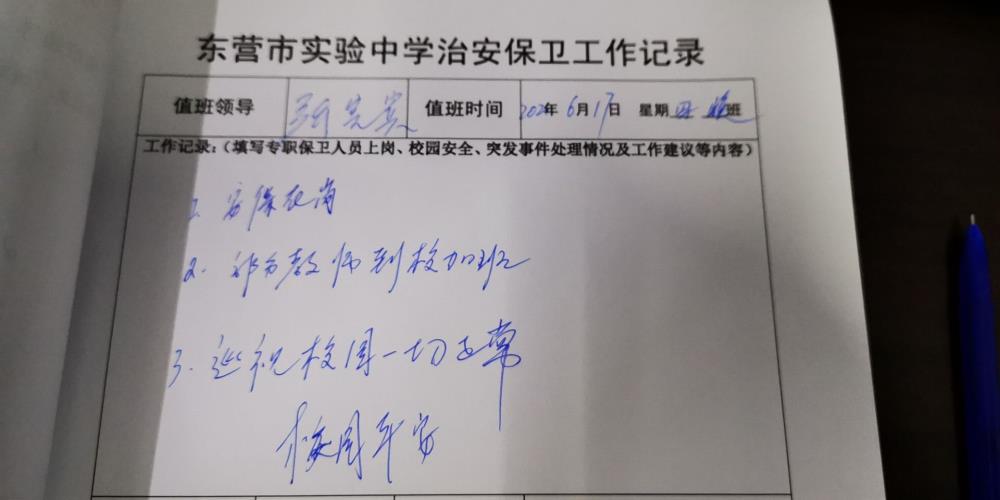 东营市实验中学治安保卫工作记录
值班领导 值班时间 202 年 6月17日 星期四 晚班
工作记录:(填写专职保卫人员上岗、校园安全、突发事件处理情况及工作建议等内容)
1. 安保在岗
2. 部分教师到校加班
3. 巡视校园一切正常
校园平安